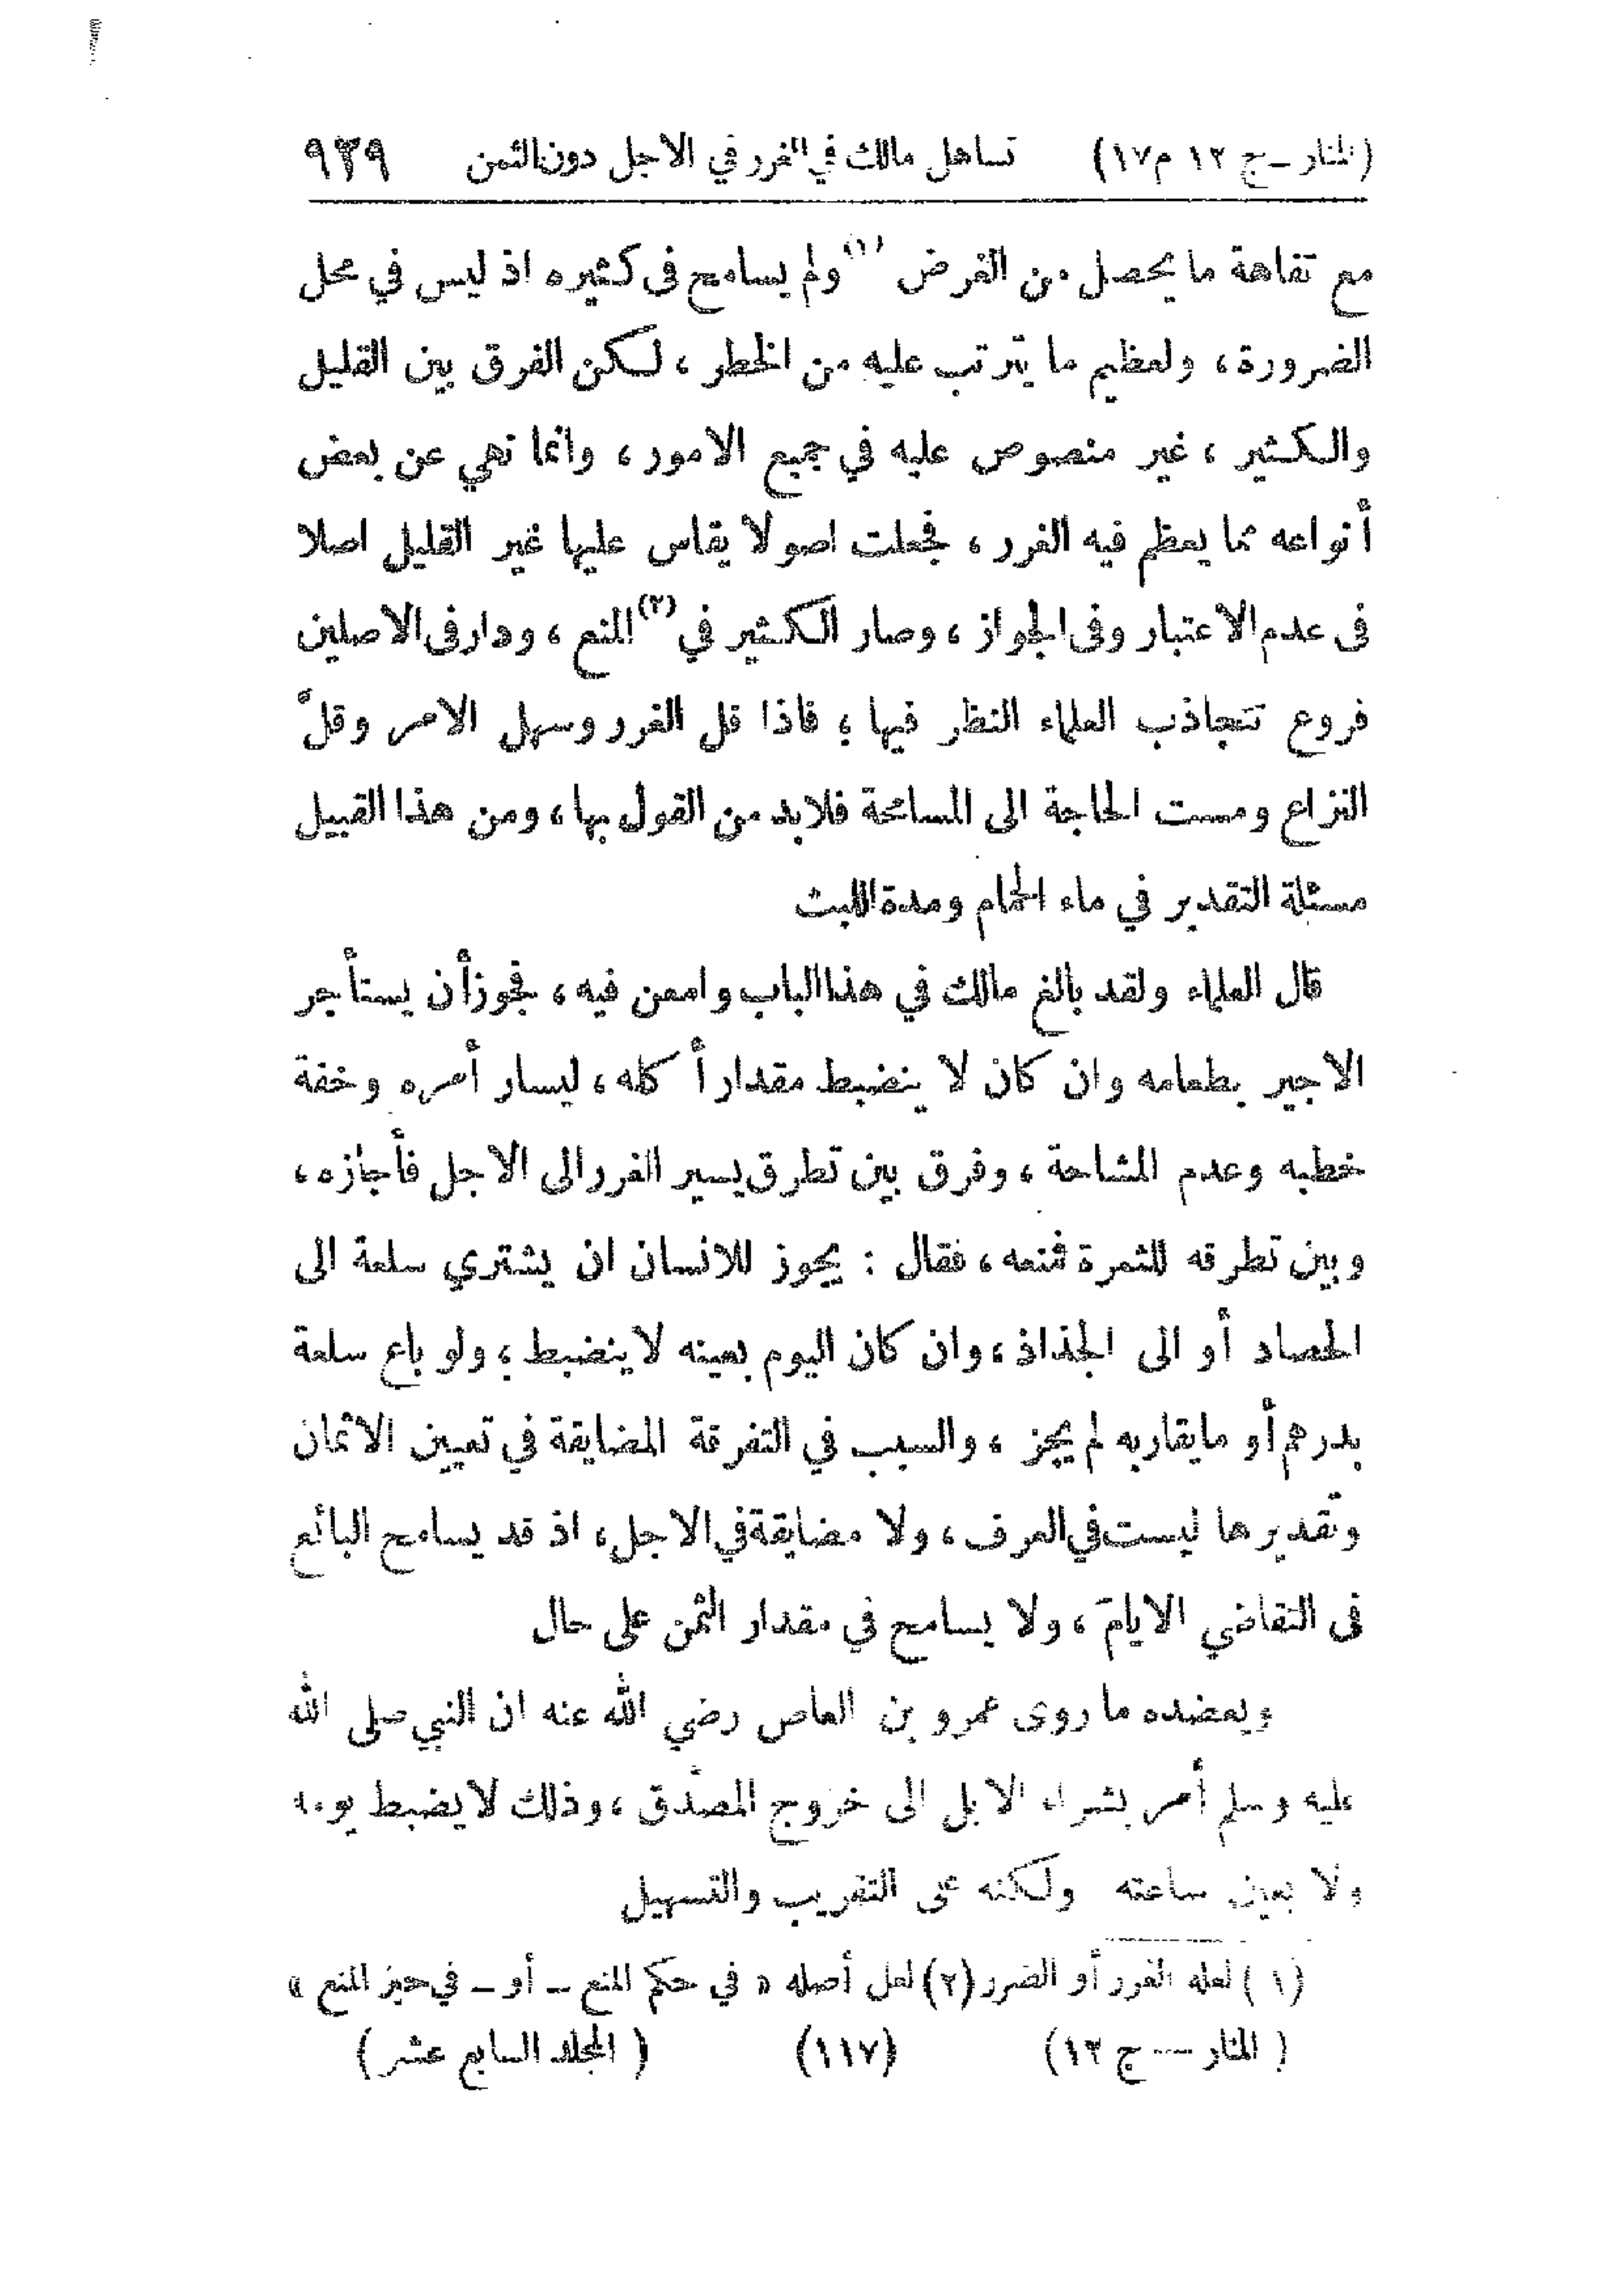 (المنار ـ ج ١٢ م ١٧) تساهل مالك في الغرر في الاجل دون الثمن ٩٢٩
مع تفاهة ما يحصل من الغرض (١) ولم يسامح في كثيره اذ ليس في محل
الضرورة ، ولعظيم ما يترتب عليه من الخطر ، لكن الفرق بين القليل
والكثير ، غير منصوص عليه في جميع الامور ، وانما نهي عن بعض
أنواعه مما يعظم فيه الغرر ، فجعلت اصولا يقاس عليها غير القليل اصلا
في عدم الاعتبار وفى الجواز ، وصار الكثير في (٢) المنع ، ودار فى الاصلين
فروع تتجاذب العلماء النظر فيها ؛ فاذا قل الغرر وسهل الامر وقلّ
النزاع ومست الحاجة الى المسامحة فلا بد من القول بها ، ومن هذا القبيل
مسئلة التقدير في ماء الحمام ومدة اللبث
قال العلماء ولقد بالغ مالك في هذا الباب وامعن فيه ، فجوز أن يستأجر
الاجير بطعامه وان كان لا ينضبط مقدار أكله ، ليسار أمره وخفة
خطبه وعدم المشاحة ، وفرق بين تطرق يسير الغرر الى الاجل فأجازه ،
وبين تطرقه للثمرة فمنعه ، فقال : يجوز للانسان ان يشتري سلعة الى
الحصاد أو الى الجذاذ ، وان كان اليوم بعينه لا ينضبط ؛ ولو باع سلعة
بدرهم أو ما يقاربه لم يجز ، والسبب في التفرقة المضايقة في تعيين الاثمان
وتقديرها ليست في العرف ، ولا مضايقة في الاجل ، اذ قد يسامح البائع
فى التقاضي الايامَ ، ولا يسامح في مقدار الثمن على حال
ويعضده ما روى عمرو بن العاص رضي الله عنه ان النبي صلى الله
عليه وسلم أمر بشراء الابل الى خروج المصدّق ، وذلك لا يضبط يومه
ولا بعين ساعته ولكنه على التقريب والتسهيل
(١) لعله الغرر أو الضرر (٢) لعل أصله « في حكم المنع ـ أو ـ في حيز المنع »
( المنار — ج ١٢) (١١٧) ( المجلد السابع عشر )